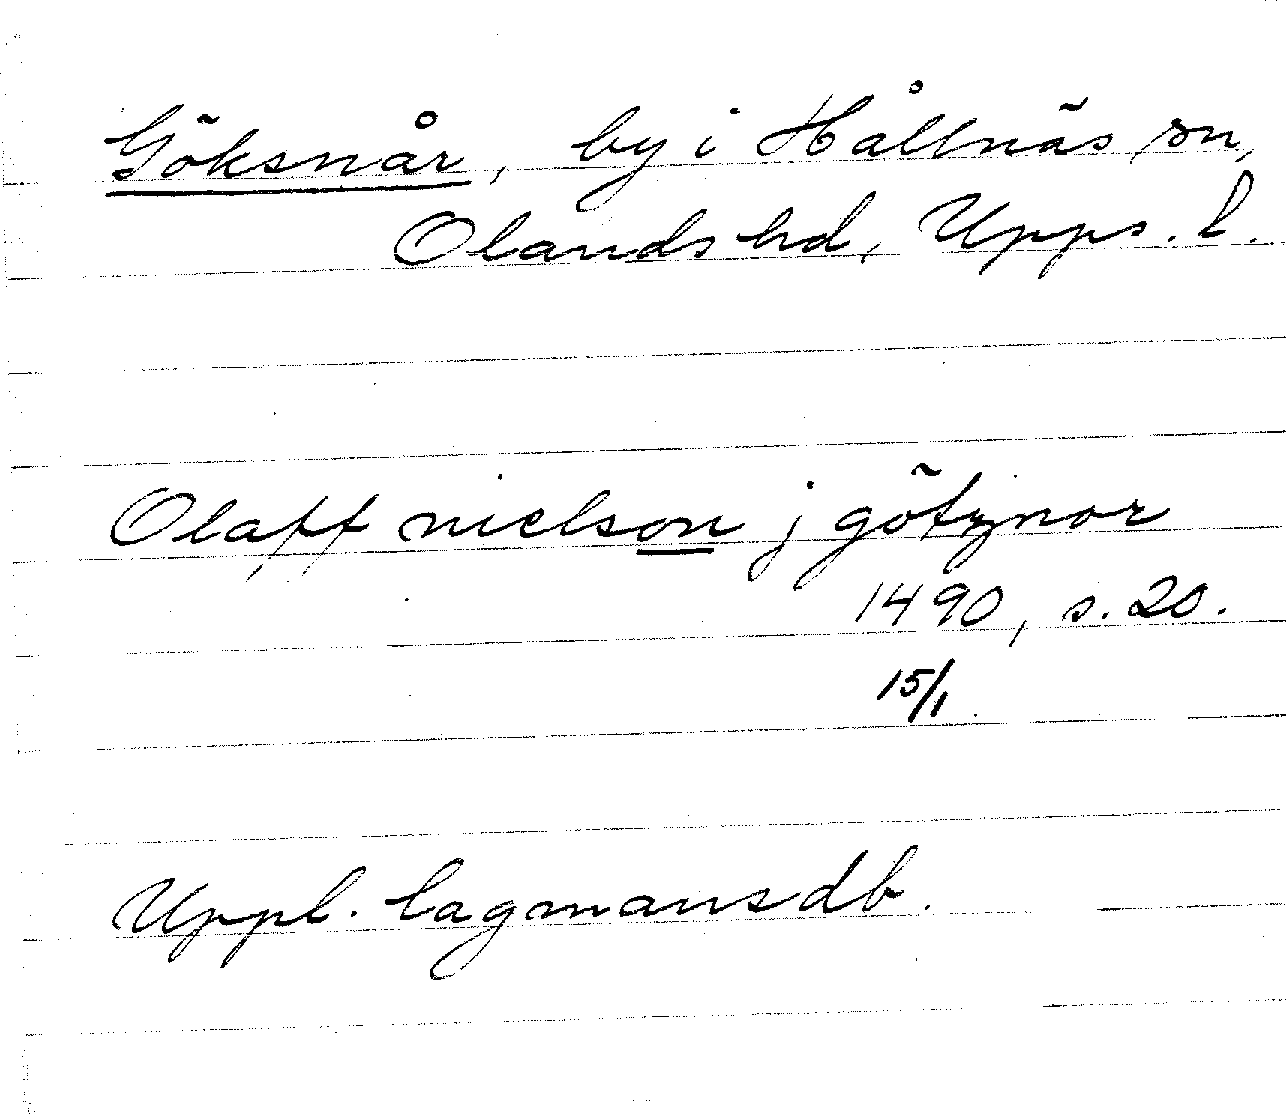 Göksnår, by i Hållnäs sn,
Olands hd, Upps. l.
Olaff nielson j götznor
1490, s. 20.
15/1
Uppl. lagmansdb.